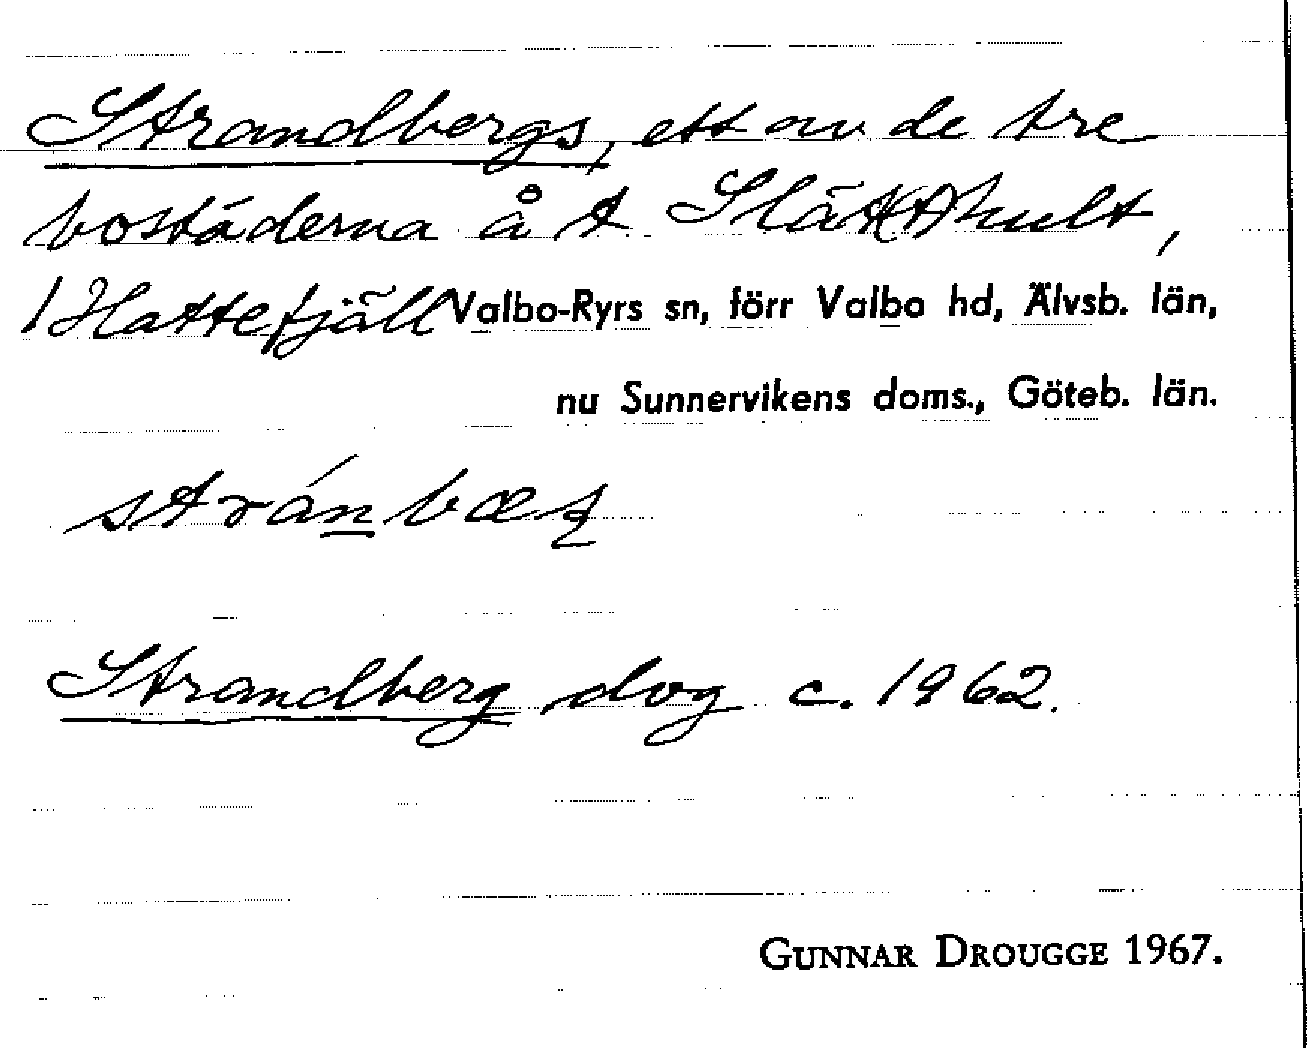 Strandbergs, ett av de tre
bostäderna å t Slätthult,
1 Hattefjäll Valbo-Ryrs sn, förr Valbo hd, Älvsb. län,
nu Sunnervikens doms., Göteb. län.
Strandberg dog c. 1962.
GUNNAR DROUGGE 1967.